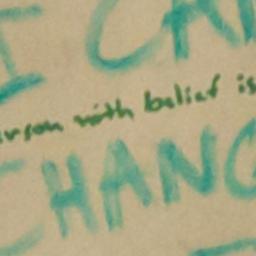 I CA
erson with belief is
CHANG